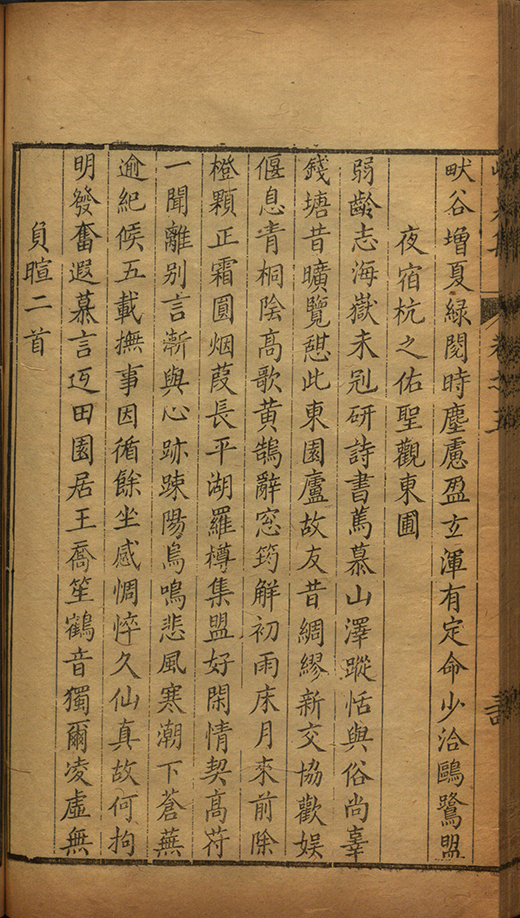 畎谷增夏緑閱時塵慮盈玄渾有定命少洽鷗鷺盟
夜宿杭之佑聖觀東圃
弱齡志海嶽未剋研詩書蔫慕山澤蹤恬與俗尚辜
錢塘昔曠覽憇此東園廬故友昔綢繆新交協歡娱
偃息青桐陰高歌黄鵠辭窓筠解初雨床月來前除
橙顆正霜圓烟葭長平湖羅樽集盟好閑情契高苻
一聞離别言漸與心跡踈陽烏鳴悲風寒潮下蒼蕪
逾紀倐五載撫事因循餘坐感惆悴久仙真故何拘
明發奮遐慕言迈田園居王喬笙鶴音獨爾凌虛無
負暄二首